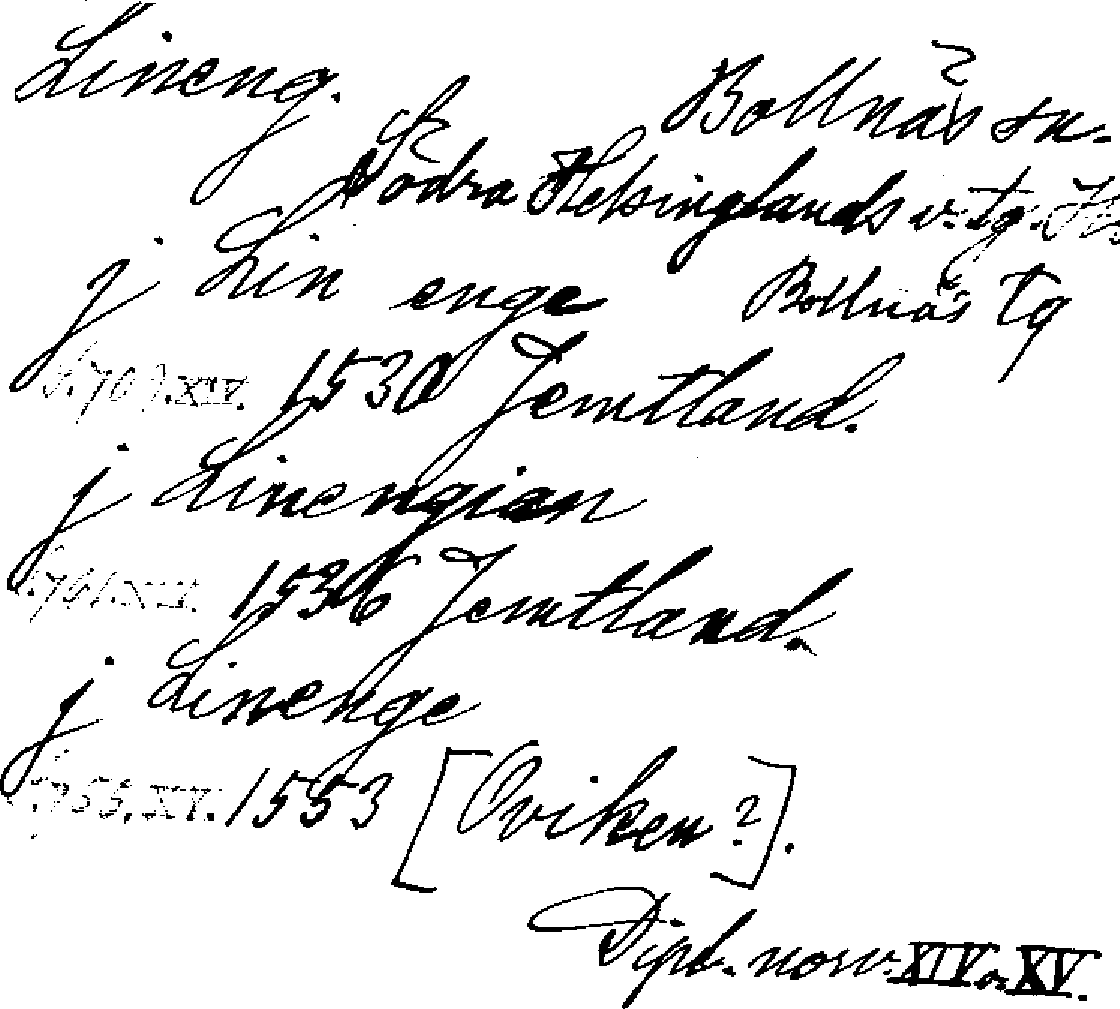 Lineng.
Bollnäs sn.
Södra Helsinglands v. tg.
j Lin enge Bollnäs tg
1530 Jemtland.
j Linengian
1536 Jemtland.
j Linenge
1553 [Oviken?].
Dipl. norv. XIV o. XV.